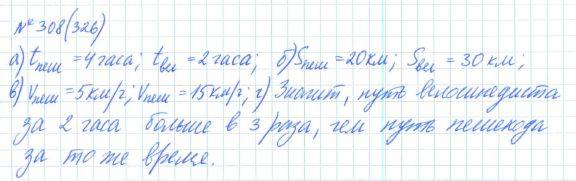 № 308(326)
а) tпеш = 4 часа; tвел = 2 часа; б) Sпеш = 20 км; Sвел = 30 км;
в) Vпеш = 5 км/г; Vпеш = 15 км/г; г) Значит, путь велосипедиста
за 2 часа больше в 3 раза, чем путь пешехода
за то же время.